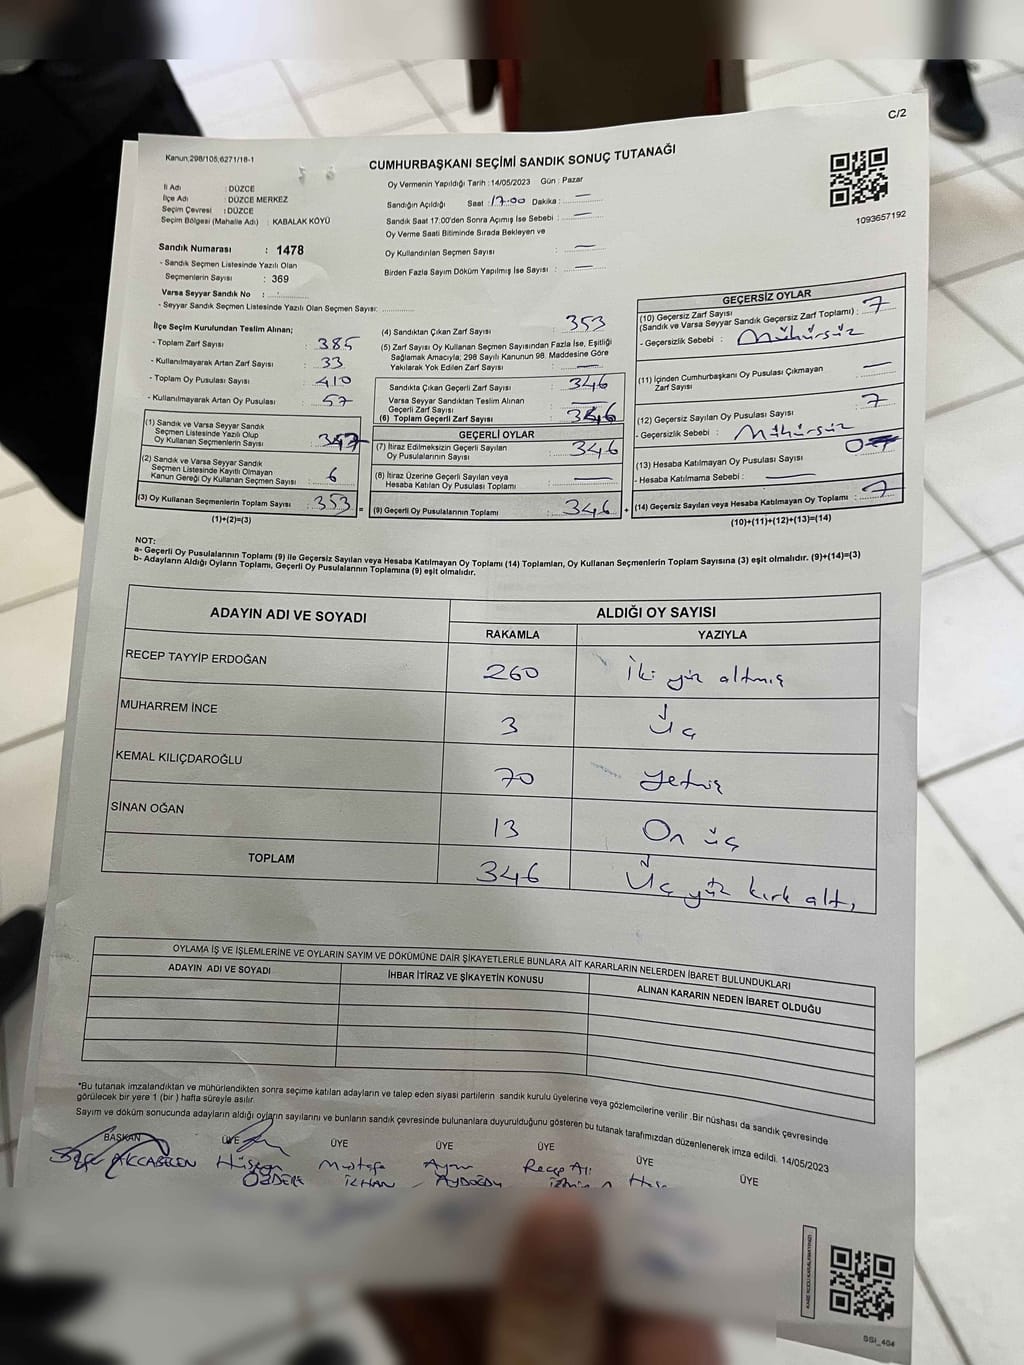 C/2
Kanun;298/105;6271/18-1
CUMHURBAŞKANI SEÇİMİ SANDIK SONUÇ TUTANAĞI
1093657192
İl Adı : DÜZCE
İlçe Adı : DÜZCE MERKEZ
Seçim Çevresi : DÜZCE
Seçim Bölgesi (Mahalle Adı) : KABALAK KÖYÜ
Oy Vermenin Yapıldığı Tarih : 14/05/2023 Gün : Pazar
Sandığın Açıldığı Saat : 17.00 Dakika : —
Sandık Saat 17.00'den Sonra Açımış İse Sebebi : —
Oy Verme Saati Bitiminde Sırada Bekleyen ve
Oy Kullandırılan Seçmen Sayısı : —
Birden Fazla Sayım Döküm Yapılmış İse Sayısı : —
Sandık Numarası : 1478
- Sandık Seçmen Listesinde Yazılı Olan
Seçmenlerin Sayısı : 369
Varsa Seyyar Sandık No :
- Seyyar Sandık Seçmen Listesinde Yazılı Olan Seçmen Sayısı:
İlçe Seçim Kurulundan Teslim Alınan;
- Toplam Zarf Sayısı : 385
- Kullanılmayarak Artan Zarf Sayısı : 33
- Toplam Oy Pusulası Sayısı : 410
- Kullanılmayarak Artan Oy Pusulası : 57
(1) Sandık ve Varsa Seyyar Sandık
Seçmen Listesinde Yazılı Olup
Oy Kullanan Seçmenlerin Sayısı : 347
(2) Sandık ve Varsa Seyyar Sandık
Seçmen Listesinde Kayıtlı Olmayan
Kanun Gereği Oy Kullanan Seçmen Sayısı : 6
(3) Oy Kullanan Seçmenlerin Toplam Sayısı : 353 =
(1)+(2)=(3)
(4) Sandıktan Çıkan Zarf Sayısı : 353
(5) Zarf Sayısı Oy Kullanan Seçmen Sayısından Fazla İse, Eşitliği
Sağlamak Amacıyla; 298 Sayılı Kanunun 98. Maddesine Göre
Yakılarak Yok Edilen Zarf Sayısı : —
Sandıkta Çıkan Geçerli Zarf Sayısı : 346
Varsa Seyyar Sandıktan Teslim Alınan
Geçerli Zarf Sayısı : —
(6) Toplam Geçerli Zarf Sayısı : 346
GEÇERLİ OYLAR
(7) İtiraz Edilmeksizin Geçerli Sayılan
Oy Pusulalarının Sayısı : 346
(8) İtiraz Üzerine Geçerli Sayılan veya
Hesaba Katılan Oy Pusulası Toplamı : —
(9) Geçerli Oy Pusulalarının Toplamı : 346 +
GEÇERSİZ OYLAR
(10) Geçersiz Zarf Sayısı
(Sandık ve Varsa Seyyar Sandık Geçersiz Zarf Toplamı) : 7
- Geçersizlik Sebebi : Mühürsüz
(11) İçinden Cumhurbaşkanı Oy Pusulası Çıkmayan
Zarf Sayısı : —
(12) Geçersiz Sayılan Oy Pusulası Sayısı : 7
- Geçersizlik Sebebi : Mühürsüz
(13) Hesaba Katılmayan Oy Pusulası Sayısı : 0
- Hesaba Katılmama Sebebi : —
(14) Geçersiz Sayılan veya Hesaba Katılmayan Oy Toplamı : 7
(10)+(11)+(12)+(13)=(14)
NOT:
a- Geçerli Oy Pusulalarının Toplamı (9) ile Geçersiz Sayılan veya Hesaba Katılmayan Oy Toplamı (14) Toplamları, Oy Kullanan Seçmenlerin Toplam Sayısına (3) eşit olmalıdır. (9)+(14)=(3)
b- Adayların Aldığı Oyların Toplamı, Geçerli Oy Pusulalarının Toplamına (9) eşit olmalıdır.
ADAYIN ADI VE SOYADI ALDIĞI OY SAYISI
RAKAMLA YAZIYLA
RECEP TAYYİP ERDOĞAN 260 İki yüz altmış
MUHARREM İNCE 3 Üç
KEMAL KILIÇDAROĞLU 70 yetmiş
SİNAN OĞAN 13 On üç
TOPLAM 346 Üç yüz kırk altı
OYLAMA İŞ VE İŞLEMLERİNE VE OYLARIN SAYIM VE DÖKÜMÜNE DAİR ŞİKAYETLERLE BUNLARA AİT KARARLARIN NELERDEN İBARET BULUNDUKLARI
ADAYIN ADI VE SOYADI İHBAR İTİRAZ VE ŞİKAYETİN KONUSU ALINAN KARARIN NEDEN İBARET OLDUĞU
*Bu tutanak imzalandıktan ve mühürlendikten sonra seçime katılan adayların ve talep eden siyasi partilerin sandık kurulu üyelerine veya gözlemcilerine verilir. Bir nüshası da sandık çevresinde
görülecek bir yere 1 (bir ) hafta süreyle asılır.
Sayım ve döküm sonucunda adayların aldığı oyların sayılarını ve bunların sandık çevresinde bulunanlara duyurulduğunu gösteren bu tutanak tarafımızdan düzenlenerek imza edildi. 14/05/2023
BAŞKAN ÜYE ÜYE ÜYE ÜYE ÜYE ÜYE
AKCABELEN Hüseyin Mustafa Recep Ali
ÖZDERE İLHAN AYDOĞDU
SSI_404